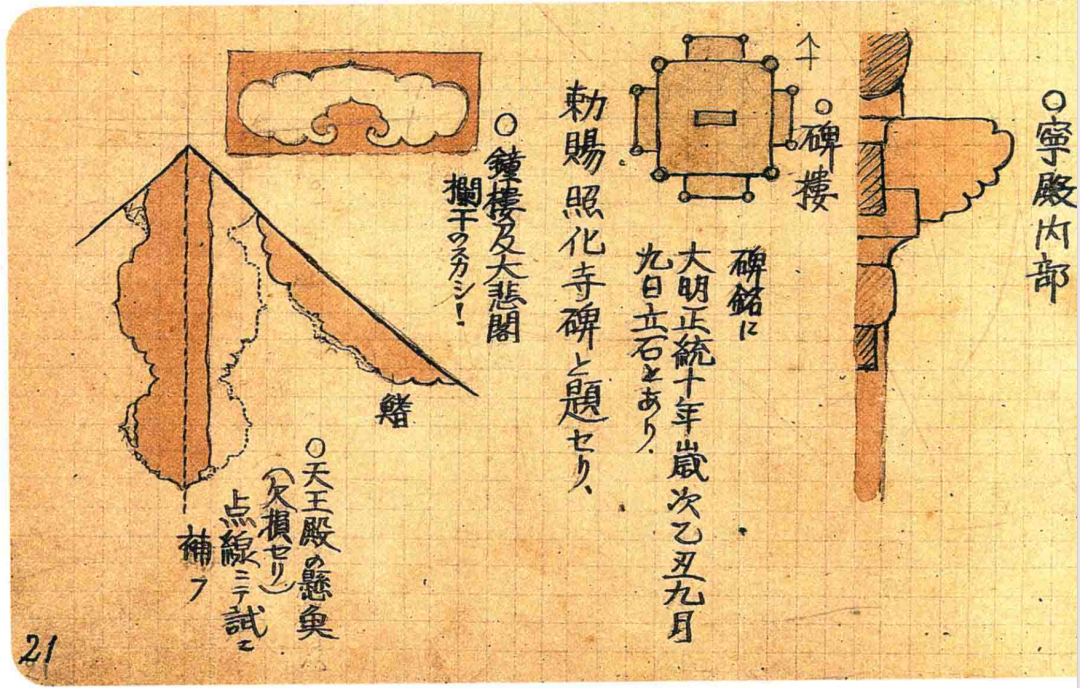 ○寧殿内部
○碑樓
碑銘に
大明正統十年歲次乙丑九月
九日立石とあり、
勅賜照化寺碑と題セリ、
○鐘樓及大悲閣
欄干のスカシ!
鰭
○天王殿の懸魚
(欠損セリ)
点線ニテ試ニ
補フ
21